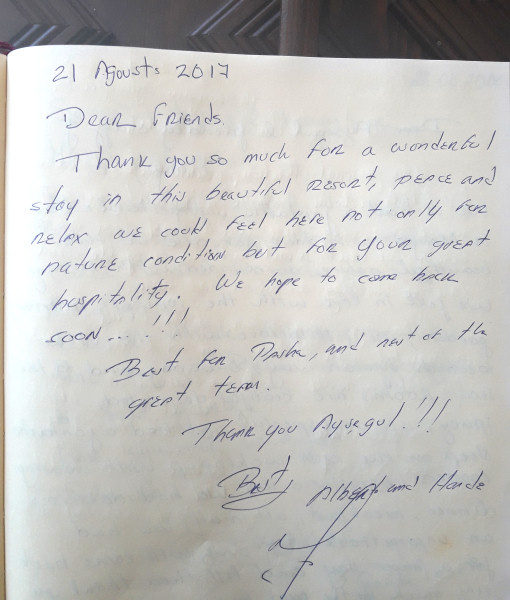 21 Agousts 2017
Dear Friends
Thank you so much for a wonderful
stay in this beautiful resort, peace and
relax we could feel here not only for
nature condition but for your great
hospitality. We hope to come back
soon... !!!
Best for Pasha, and rest of the
great team.
Thank you Aysegul!!!
Best Albert and Hande